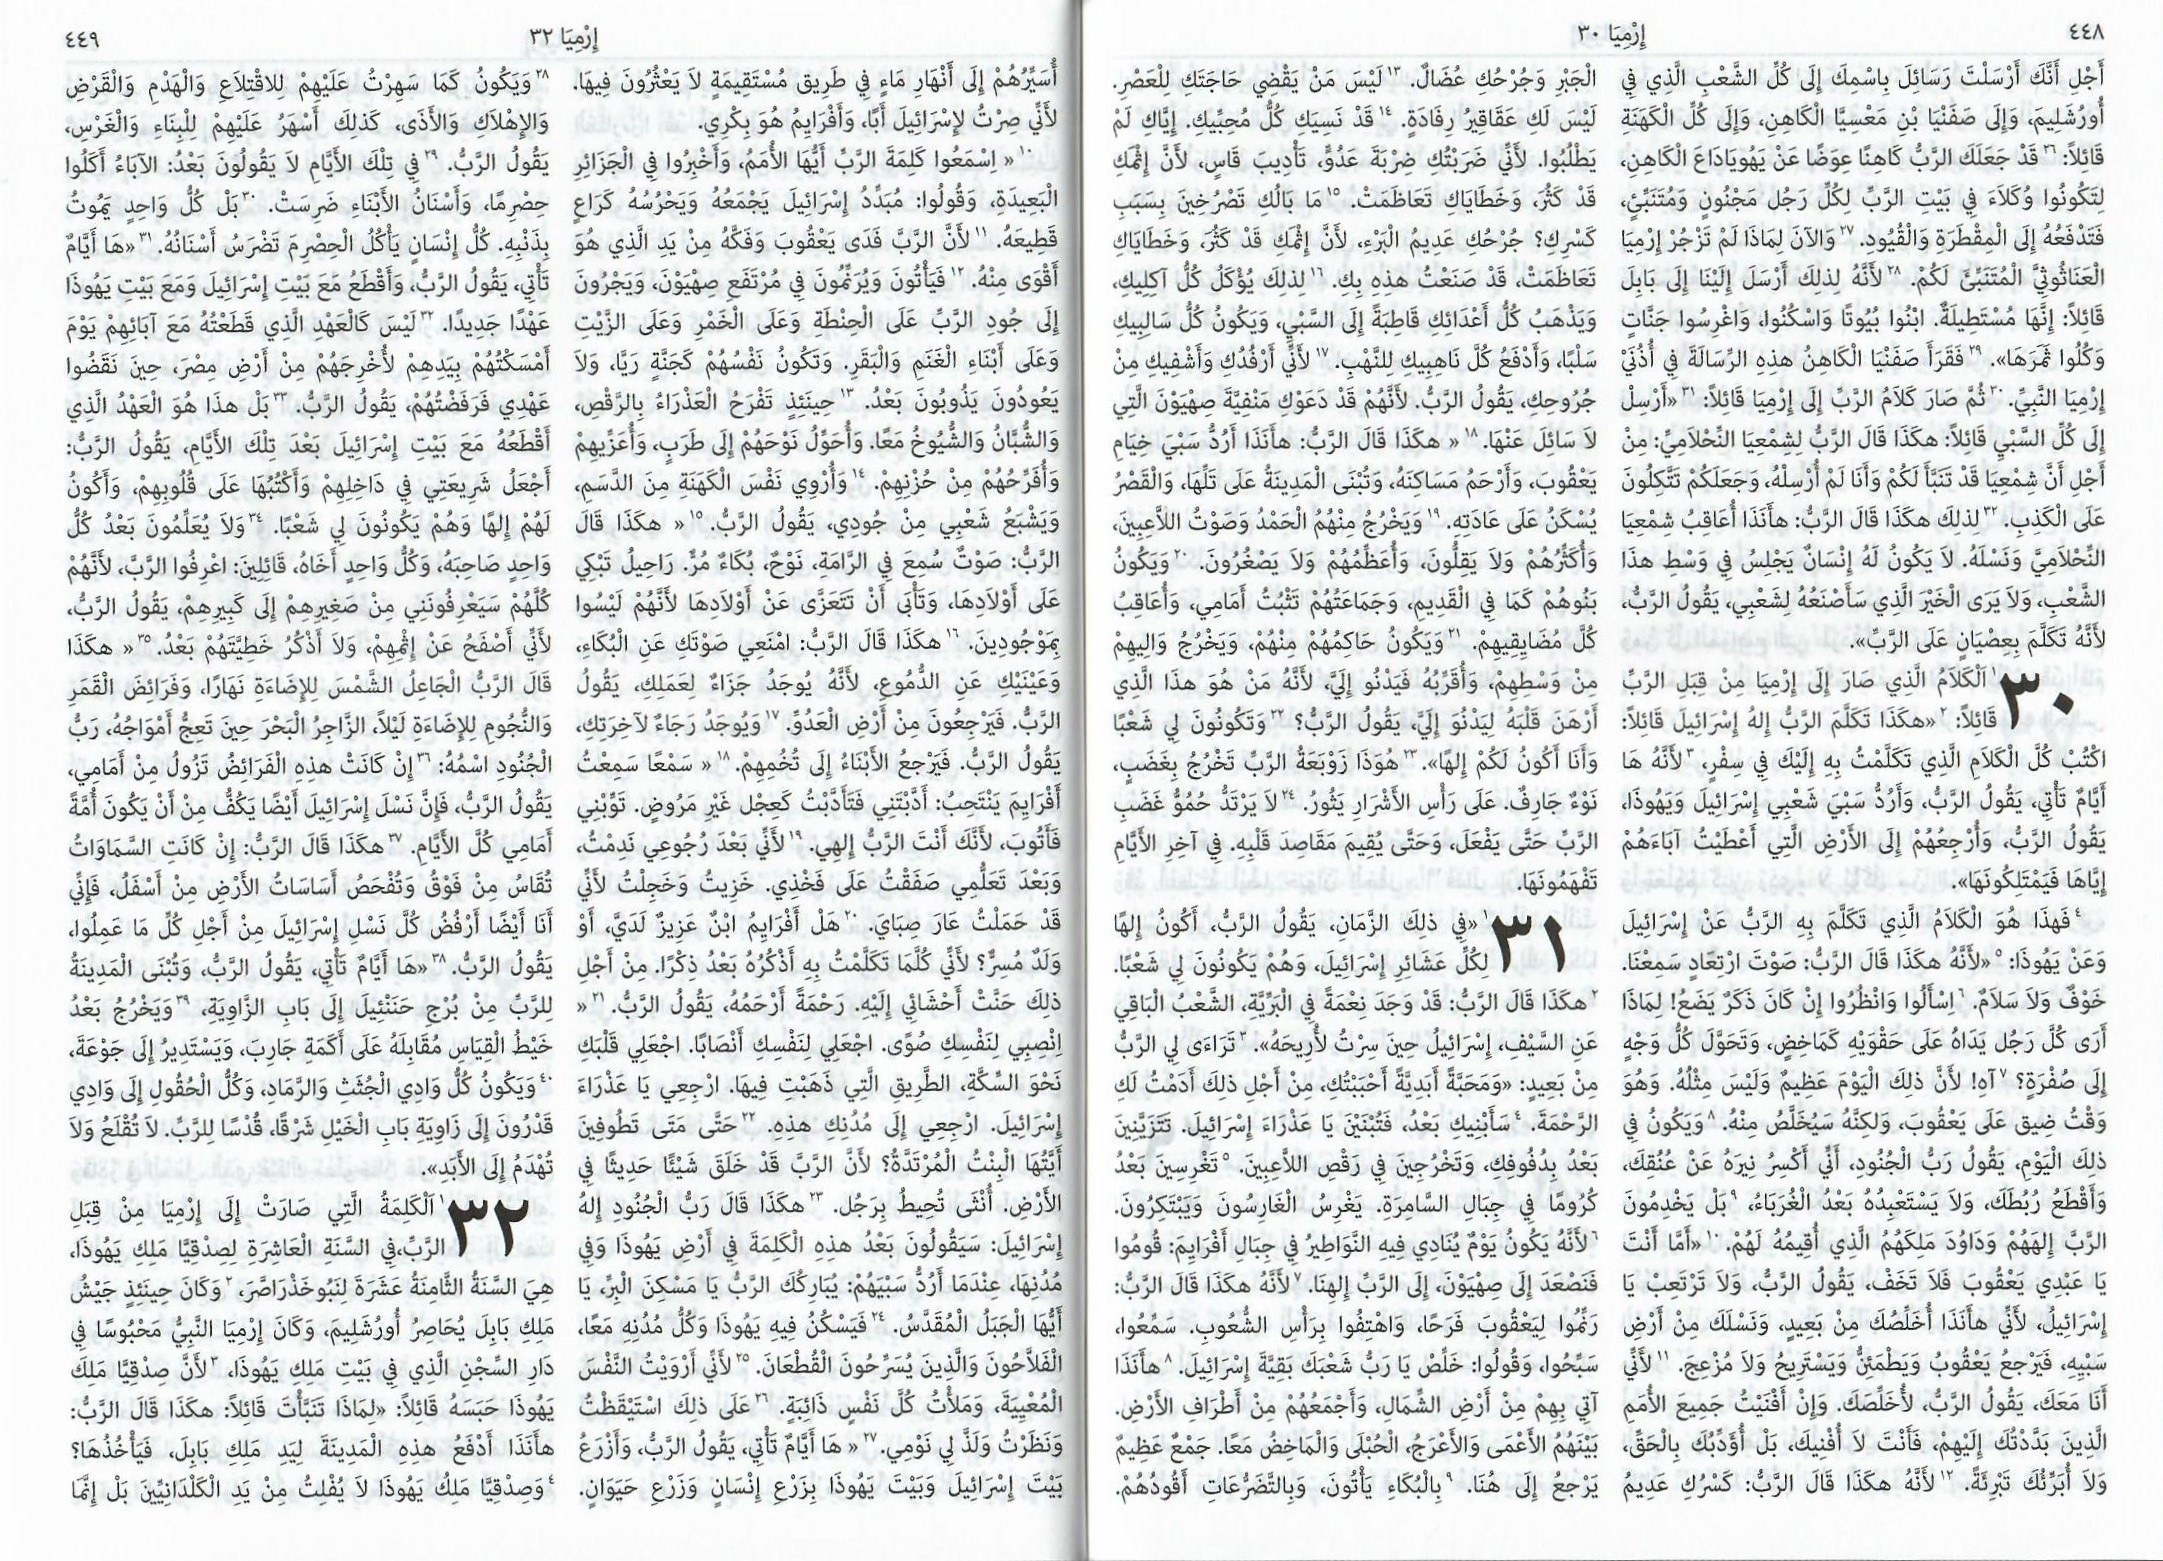 ٤٤٨
إِرْمِيَا ٣٠
أَجْلِ أَنَّكَ أَرْسَلْتَ رَسَائِلَ بِاسْمِكَ إِلَى كُلِّ الشَّعْبِ الَّذِي فِي
أُورُشَلِيمَ، وَإِلَى صَفَنْيَا بْنِ مَعْسِيَّا الْكَاهِنِ، وَإِلَى كُلِّ الْكَهَنَةِ
قَائِلاً: ٢٦ قَدْ جَعَلَكَ الرَّبُّ كَاهِنًا عِوَضًا عَنْ يَهُويَادَاعَ الْكَاهِنِ،
لِتَكُونُوا وُكَلاَءَ فِي بَيْتِ الرَّبِّ لِكُلِّ رَجُل مَجْنُونٍ وَمُتَنَبِّئٍ،
فَتَدْفَعُهُ إِلَى الْمِقْطَرَةِ وَالْقُيُودِ. ٢٧ وَالآنَ لِمَاذَا لَمْ تَزْجُرْ إِرْمِيَا
الْعَنَاثُوثِيَّ الْمُتَنَبِّئَ لَكُمْ. ٢٨ لأَنَّهُ لِذلِكَ أَرْسَلَ إِلَيْنَا إِلَى بَابِلَ
قَائِلاً: إِنَّهَا مُسْتَطِيلَةٌ. ابْنُوا بُيُوتًا وَاسْكُنُوا، وَاغْرِسُوا جَنَّاتٍ
وَكُلُوا ثَمَرَهَا». ٢٩ فَقَرَأَ صَفَنْيَا الْكَاهِنُ هذِهِ الرِّسَالَةَ فِي أُذُنَيْ
إِرْمِيَا النَّبِيِّ. ٣٠ ثُمَّ صَارَ كَلاَمُ الرَّبِّ إِلَى إِرْمِيَا قَائِلاً: ٣١ «أَرْسِلْ
إِلَى كُلِّ السَّبْيِ قَائِلاً: هكَذَا قَالَ الرَّبُّ لِشِمْعِيَا النِّحْلاَمِيِّ: مِنْ
أَجْلِ أَنَّ شِمْعِيَا قَدْ تَنَبَّأَ لَكُمْ وَأَنَا لَمْ أُرْسِلْهُ، وَجَعَلَكُمْ تَتَّكِلُونَ
عَلَى الْكَذِبِ. ٣٢ لِذلِكَ هكَذَا قَالَ الرَّبُّ: هأَنَذَا أُعَاقِبُ شِمْعِيَا
النِّحْلاَمِيَّ وَنَسْلَهُ. لاَ يَكُونُ لَهُ إِنْسَانٌ يَجْلِسُ فِي وَسْطِ هذَا
الشَّعْبِ، وَلاَ يَرَى الْخَيْرَ الَّذِي سَأَصْنَعُهُ لِشَعْبِي، يَقُولُ الرَّبُّ،
لأَنَّهُ تَكَلَّمَ بِعِصْيَانٍ عَلَى الرَّبِّ».
٣٠ ١ اَلْكَلاَمُ الَّذِي صَارَ إِلَى إِرْمِيَا مِنْ قِبَلِ الرَّبِّ
قَائِلاً: ٢ «هكَذَا تَكَلَّمَ الرَّبُّ إِلهُ إِسْرَائِيلَ قَائِلاً:
اكْتُبْ كُلَّ الْكَلاَمِ الَّذِي تَكَلَّمْتُ بِهِ إِلَيْكَ فِي سِفْرٍ، ٣ لأَنَّهُ هَا
أَيَّامٌ تَأْتِي، يَقُولُ الرَّبُّ، وَأَرُدُّ سَبْيَ شَعْبِي إِسْرَائِيلَ وَيَهُوذَا،
يَقُولُ الرَّبُّ، وَأُرْجِعُهُمْ إِلَى الأَرْضِ الَّتِي أَعْطَيْتُ آبَاءَهُمْ
إِيَّاهَا فَيَمْتَلِكُونَهَا».
٤ فَهذَا هُوَ الْكَلاَمُ الَّذِي تَكَلَّمَ بِهِ الرَّبُّ عَنْ إِسْرَائِيلَ
وَعَنْ يَهُوذَا: ٥ «لأَنَّهُ هكَذَا قَالَ الرَّبُّ: صَوْتَ ارْتِعَادٍ سَمِعْنَا.
خَوْفٌ وَلاَ سَلاَمٌ. ٦ اِسْأَلُوا وَانْظُرُوا إِنْ كَانَ ذَكَرٌ يَضَعُ! لِمَاذَا
أَرَى كُلَّ رَجُل يَدَاهُ عَلَى حَقْوَيْهِ كَمَاخِضٍ، وَتَحَوَّلَ كُلُّ وَجْهٍ
إِلَى صُفْرَةٍ؟ ٧ آهِ! لأَنَّ ذلِكَ الْيَوْمَ عَظِيمٌ وَلَيْسَ مِثْلُهُ. وَهُوَ
وَقْتُ ضِيق عَلَى يَعْقُوبَ، وَلكِنَّهُ سَيُخَلَّصُ مِنْهُ. ٨ وَيَكُونُ فِي
ذلِكَ الْيَوْمِ، يَقُولُ رَبُّ الْجُنُودِ، أَنِّي أَكْسِرُ نِيرَهُ عَنْ عُنُقِكَ،
وَأَقْطَعُ رُبُطَكَ، وَلاَ يَسْتَعْبِدُهُ بَعْدُ الْغُرَبَاءُ، ٩ بَلْ يَخْدِمُونَ
الرَّبَّ إِلهَهُمْ وَدَاوُدَ مَلِكَهُمُ الَّذِي أُقِيمُهُ لَهُمْ. ١٠ «أَمَّا أَنْتَ
يَا عَبْدِي يَعْقُوبَ فَلاَ تَخَفْ، يَقُولُ الرَّبُّ، وَلاَ تَرْتَعِبْ يَا
إِسْرَائِيلُ، لأَنِّي هأَنَذَا أُخَلِّصُكَ مِنْ بَعِيدٍ، وَنَسْلَكَ مِنْ أَرْضِ
سَبْيِهِ، فَيَرْجعُ يَعْقُوبُ وَيَطْمَئِنُّ وَيَسْتَرِيحُ وَلاَ مُزْعِجَ. ١١ لأَنِّي
أَنَا مَعَكَ، يَقُولُ الرَّبُّ، لأُخَلِّصَكَ. وَإِنْ أَفْنَيْتُ جَمِيعَ الأُمَمِ
الَّذِينَ بَدَّدْتُكَ إِلَيْهِمْ، فَأَنْتَ لاَ أُفْنِيكَ، بَلْ أُؤَدِّبُكَ بِالْحَقِّ،
وَلاَ أُبَرِّئُكَ تَبْرِئَةً. ١٢ لأَنَّهُ هكَذَا قَالَ الرَّبُّ: كَسْرُكِ عَدِيمُ
الْجَبْرِ وَجُرْحُكِ عُضَالٌ. ١٣ لَيْسَ مَنْ يَقْضِي حَاجَتَكِ لِلْعَصْرِ.
لَيْسَ لَكِ عَقَاقِيرُ رِفَادَةٍ. ١٤ قَدْ نَسِيَكِ كُلُّ مُحِبِّيكِ. إِيَّاكِ لَمْ
يَطْلُبُوا. لأَنِّي ضَرَبْتُكِ ضِرْبَةَ عَدُوٍّ، تَأْدِيبَ قَاسٍ، لأَنَّ إِثْمَكِ
قَدْ كَثُرَ، وَخَطَايَاكِ تَعَاظَمَتْ. ١٥ مَا بَالُكِ تَصْرُخِينَ بِسَبَبِ
كَسْرِكِ؟ جُرْحُكِ عَدِيمُ الْبَرْءِ، لأَنَّ إِثْمَكِ قَدْ كَثُرَ، وَخَطَايَاكِ
تَعَاظَمَتْ، قَدْ صَنَعْتُ هذِهِ بِكِ. ١٦ لِذلِكَ يُؤْكَلُ كُلُّ آكِلِيكِ،
وَيَذْهَبُ كُلُّ أَعْدَائِكِ قَاطِبَةً إِلَى السَّبْيِ، وَيَكُونُ كُلُّ سَالِبِيكِ
سَلْبًا، وَأَدْفَعُ كُلَّ نَاهِبِيكِ لِلنَّهْبِ. ١٧ لأَنِّي أَرْفُدُكِ وَأَشْفِيكِ مِنْ
جُرُوحِكِ، يَقُولُ الرَّبُّ. لأَنَّهُمْ قَدْ دَعَوْكِ مَنْفِيَّةَ صِهْيَوْنَ الَّتِي
لاَ سَائِلَ عَنْهَا. ١٨ « هكَذَا قَالَ الرَّبُّ: هأَنَذَا أَرُدُّ سَبْيَ خِيَامِ
يَعْقُوبَ، وَأَرْحَمُ مَسَاكِنَهُ، وَتُبْنَى الْمَدِينَةُ عَلَى تَلِّهَا، وَالْقَصْرُ
يُسْكَنُ عَلَى عَادَتِهِ. ١٩ وَيَخْرُجُ مِنْهُمُ الْحَمْدُ وَصَوْتُ اللاَّعِبِينَ،
وَأُكَثِّرُهُمْ وَلاَ يَقِلُّونَ، وَأُعَظِّمُهُمْ وَلاَ يَصْغُرُونَ. ٢٠ وَيَكُونُ
بَنُوهُمْ كَمَا فِي الْقَدِيمِ، وَجَمَاعَتُهُمْ تَثْبُتُ أَمَامِي، وَأُعَاقِبُ
كُلَّ مُضَايِقِيهِمْ. ٢١ وَيَكُونُ حَاكِمُهُمْ مِنْهُمْ، وَيَخْرُجُ وَالِيهِمْ
مِنْ وَسْطِهِمْ، وَأُقَرِّبُهُ فَيَدْنُو إِلَيَّ، لأَنَّهُ مَنْ هُوَ هذَا الَّذِي
أَرْهَنَ قَلْبَهُ لِيَدْنُوَ إِلَيَّ، يَقُولُ الرَّبُّ؟ ٢٢ وَتَكُونُونَ لِي شَعْبًا
وَأَنَا أَكُونُ لَكُمْ إِلهًا». ٢٣ هُوَذَا زَوْبَعَةُ الرَّبِّ تَخْرُجُ بِغَضَبٍ،
نَوْءٌ جَارِفٌ. عَلَى رَأْسِ الأَشْرَارِ يَثُورُ. ٢٤ لاَ يَرْتَدُّ حُمُوُّ غَضَبِ
الرَّبِّ حَتَّى يَفْعَلَ، وَحَتَّى يُقِيمَ مَقَاصِدَ قَلْبِهِ. فِي آخِرِ الأَيَّامِ
تَفْهَمُونَهَا.
٣١ ١ «فِي ذلِكَ الزَّمَانِ، يَقُولُ الرَّبُّ، أَكُونُ إِلهًا
لِكُلِّ عَشَائِرِ إِسْرَائِيلَ، وَهُمْ يَكُونُونَ لِي شَعْبًا.
٢ هكَذَا قَالَ الرَّبُّ: قَدْ وَجَدَ نِعْمَةً فِي الْبَرِّيَّةِ، الشَّعْبُ الْبَاقِي
عَنِ السَّيْفِ، إِسْرَائِيلُ حِينَ سِرْتُ لأُرِيحَهُ». ٣ تَرَاءَى لِي الرَّبُّ
مِنْ بَعِيدٍ: «وَمَحَبَّةً أَبَدِيَّةً أَحْبَبْتُكِ، مِنْ أَجْلِ ذلِكَ أَدَمْتُ لَكِ
الرَّحْمَةَ. ٤ سَأَبْنِيكِ بَعْدُ، فَتُبْنَيْنَ يَا عَذْرَاءَ إِسْرَائِيلَ. تَتَزَيَّنِينَ
بَعْدُ بِدُفُوفِكِ، وَتَخْرُجِينَ فِي رَقْصِ اللاَّعِبِينَ. ٥ تَغْرِسِينَ بَعْدُ
كُرُومًا فِي جِبَالِ السَّامِرَةِ. يَغْرِسُ الْغَارِسُونَ وَيَبْتَكِرُونَ.
٦ لأَنَّهُ يَكُونُ يَوْمٌ يُنَادِي فِيهِ النَّوَاطِيرُ فِي جِبَالِ أَفْرَايِمَ: قُومُوا
فَنَصْعَدَ إِلَى صِهْيَوْنَ، إِلَى الرَّبِّ إِلهِنَا. ٧ لأَنَّهُ هكَذَا قَالَ الرَّبُّ:
رَنِّمُوا لِيَعْقُوبَ فَرَحًا، وَاهْتِفُوا بِرَأْسِ الشُّعُوبِ. سَمِّعُوا،
سَبِّحُوا، وَقُولُوا: خَلِّصْ يَا رَبُّ شَعْبَكَ بَقِيَّةَ إِسْرَائِيلَ. ٨ هأَنَذَا
آتِي بِهِمْ مِنْ أَرْضِ الشِّمَالِ، وَأَجْمَعُهُمْ مِنْ أَطْرَافِ الأَرْضِ.
بَيْنَهُمُ الأَعْمَى وَالأَعْرَجُ، الْحُبْلَى وَالْمَاخِضُ مَعًا. جَمْعٌ عَظِيمٌ
يَرْجعُ إِلَى هُنَا. ٩ بِالْبُكَاءِ يَأْتُونَ، وَبِالتَّضَرُّعَاتِ أَقُودُهُمْ.
إِرْمِيَا ٣٢
٤٤٩
أُسَيِّرُهُمْ إِلَى أَنْهَارِ مَاءٍ فِي طَرِيق مُسْتَقِيمَةٍ لاَ يَعْثُرُونَ فِيهَا.
لأَنِّي صِرْتُ لإِسْرَائِيلَ أَبًا، وَأَفْرَايِمُ هُوَ بِكْرِي.
١٠ « اِسْمَعُوا كَلِمَةَ الرَّبِّ أَيُّهَا الأُمَمُ، وَأَخْبِرُوا فِي الْجَزَائِرِ
الْبَعِيدَةِ، وَقُولُوا: مُبَدِّدُ إِسْرَائِيلَ يَجْمَعُهُ وَيَحْرُسُهُ كَرَاعٍ
قَطِيعَهُ. ١١ لأَنَّ الرَّبَّ فَدَى يَعْقُوبَ وَفَكَّهُ مِنْ يَدِ الَّذِي هُوَ
أَقْوَى مِنْهُ. ١٢ فَيَأْتُونَ وَيُرَنِّمُونَ فِي مُرْتَفَعِ صِهْيَوْنَ، وَيَجْرُونَ
إِلَى جُودِ الرَّبِّ عَلَى الْحِنْطَةِ وَعَلَى الْخَمْرِ وَعَلَى الزَّيْتِ
وَعَلَى أَبْنَاءِ الْغَنَمِ وَالْبَقَرِ. وَتَكُونُ نَفْسُهُمْ كَجَنَّةٍ رَيَّا، وَلاَ
يَعُودُونَ يَذُوبُونَ بَعْدُ. ١٣ حِينَئِذٍ تَفْرَحُ الْعَذْرَاءُ بِالرَّقْصِ،
وَالشُّبَّانُ وَالشُّيُوخُ مَعًا. وَأُحَوِّلُ نَوْحَهُمْ إِلَى طَرَبٍ، وَأُعَزِّيهِمْ
وَأُفَرِّحُهُمْ مِنْ حُزْنِهِمْ. ١٤ وَأُرْوِي نَفْسَ الْكَهَنَةِ مِنَ الدَّسَمِ،
وَيَشْبَعُ شَعْبِي مِنْ جُودِي، يَقُولُ الرَّبُّ. ١٥ « هكَذَا قَالَ
الرَّبُّ: صَوْتٌ سُمِعَ فِي الرَّامَةِ، نَوْحٌ، بُكَاءٌ مُرٌّ. رَاحِيلُ تَبْكِي
عَلَى أَوْلاَدِهَا، وَتَأْبَى أَنْ تَتَعَزَّى عَنْ أَوْلاَدِهَا لأَنَّهُمْ لَيْسُوا
بِمَوْجُودِينَ. ١٦ هكَذَا قَالَ الرَّبُّ: امْنَعِي صَوْتَكِ عَنِ الْبُكَاءِ،
وَعَيْنَيْكِ عَنِ الدُّمُوعِ، لأَنَّهُ يُوجَدُ جَزَاءٌ لِعَمَلِكِ، يَقُولُ
الرَّبُّ. فَيَرْجِعُونَ مِنْ أَرْضِ الْعَدُوِّ. ١٧ وَيُوجَدُ رَجَاءٌ لآخِرَتِكِ،
يَقُولُ الرَّبُّ. فَيَرْجعُ الأَبْنَاءُ إِلَى تُخُمِهِمْ. ١٨ « سَمْعًا سَمِعْتُ
أَفْرَايِمَ يَنْتَحِبُ: أَدَّبْتَنِي فَتَأَدَّبْتُ كَعِجْل غَيْرِ مَرُوضٍ. تَوِّبْنِي
فَأَتُوبَ، لأَنَّكَ أَنْتَ الرَّبُّ إِلهِي. ١٩ لأَنِّي بَعْدَ رُجُوعِي نَدِمْتُ،
وَبَعْدَ تَعَلُّمِي صَفَقْتُ عَلَى فَخْذِي. خَزِيتُ وَخَجِلْتُ لأَنِّي
قَدْ حَمَلْتُ عَارَ صِبَايَ. ٢٠ هَلْ أَفْرَايِمُ ابْنٌ عَزِيزٌ لَدَيَّ، أَوْ
وَلَدٌ مُسِرٌّ؟ لأَنِّي كُلَّمَا تَكَلَّمْتُ بِهِ أَذْكُرُهُ بَعْدُ ذِكْرًا. مِنْ أَجْلِ
ذلِكَ حَنَّتْ أَحْشَائِي إِلَيْهِ. رَحْمَةً أَرْحَمُهُ، يَقُولُ الرَّبُّ. ٢١ «
اِنْصِبِي لِنَفْسِكِ صُوًى. اجْعَلِي لِنَفْسِكِ أَنْصَابًا. اجْعَلِي قَلْبَكِ
نَحْوَ السِّكَّةِ، الطَّرِيقِ الَّتِي ذَهَبْتِ فِيهَا. ارْجِعِي يَا عَذْرَاءَ
إِسْرَائِيلَ. ارْجِعِي إِلَى مُدُنِكِ هذِهِ. ٢٢ حَتَّى مَتَى تَطُوفِينَ
أَيَّتُهَا الْبِنْتُ الْمُرْتَدَّةُ؟ لأَنَّ الرَّبَّ قَدْ خَلَقَ شَيْئًا حَدِيثًا فِي
الأَرْضِ. أُنْثَى تُحِيطُ بِرَجُل. ٢٣ هكَذَا قَالَ رَبُّ الْجُنُودِ إِلهُ
إِسْرَائِيلَ: سَيَقُولُونَ بَعْدُ هذِهِ الْكَلِمَةَ فِي أَرْضِ يَهُوذَا وَفِي
مُدُنِهَا، عِنْدَمَا أَرُدُّ سَبْيَهُمْ: يُبَارِكُكَ الرَّبُّ يَا مَسْكِنَ الْبِرِّ، يَا
أَيُّهَا الْجَبَلُ الْمُقَدَّسُ. ٢٤ فَيَسْكُنُ فِيهِ يَهُوذَا وَكُلُّ مُدُنِهِ مَعًا،
الْفَلاَّحُونَ وَالَّذِينَ يُسَرِّحُونَ الْقُطْعَانَ. ٢٥ لأَنِّي أَرْوَيْتُ النَّفْسَ
الْمُعْيِيَةَ، وَمَلأْتُ كُلَّ نَفْسٍ ذَائِبَةٍ. ٢٦ عَلَى ذلِكَ اسْتَيْقَظْتُ
وَنَظَرْتُ وَلَذَّ لِي نَوْمِي. ٢٧ « هَا أَيَّامٌ تَأْتِي، يَقُولُ الرَّبُّ، وَأَزْرَعُ
بَيْتَ إِسْرَائِيلَ وَبَيْتَ يَهُوذَا بِزَرْعِ إِنْسَانٍ وَزَرْعِ حَيَوَانٍ.
٢٨ وَيَكُونُ كَمَا سَهِرْتُ عَلَيْهِمْ لِلاقْتِلاَعِ وَالْهَدْمِ وَالْقَرْضِ
وَالإِهْلاَكِ وَالأَذَى، كَذلِكَ أَسْهَرُ عَلَيْهِمْ لِلْبِنَاءِ وَالْغَرْسِ،
يَقُولُ الرَّبُّ. ٢٩ فِي تِلْكَ الأَيَّامِ لاَ يَقُولُونَ بَعْدُ: الآبَاءُ أَكَلُوا
حِصْرِمًا، وَأَسْنَانُ الأَبْنَاءِ ضَرِسَتْ. ٣٠ بَلْ كُلُّ وَاحِدٍ يَمُوتُ
بِذَنْبِهِ. كُلُّ إِنْسَانٍ يَأْكُلُ الْحِصْرِمَ تَضْرَسُ أَسْنَانُهُ. ٣١ «هَا أَيَّامٌ
تَأْتِي، يَقُولُ الرَّبُّ، وَأَقْطَعُ مَعَ بَيْتِ إِسْرَائِيلَ وَمَعَ بَيْتِ يَهُوذَا
عَهْدًا جَدِيدًا. ٣٢ لَيْسَ كَالْعَهْدِ الَّذِي قَطَعْتُهُ مَعَ آبَائِهِمْ يَوْمَ
أَمْسَكْتُهُمْ بِيَدِهِمْ لأُخْرِجَهُمْ مِنْ أَرْضِ مِصْرَ، حِينَ نَقَضُوا
عَهْدِي فَرَفَضْتُهُمْ، يَقُولُ الرَّبُّ. ٣٣ بَلْ هذَا هُوَ الْعَهْدُ الَّذِي
أَقْطَعُهُ مَعَ بَيْتِ إِسْرَائِيلَ بَعْدَ تِلْكَ الأَيَّامِ، يَقُولُ الرَّبُّ:
أَجْعَلُ شَرِيعَتِي فِي دَاخِلِهِمْ وَأَكْتُبُهَا عَلَى قُلُوبِهِمْ، وَأَكُونُ
لَهُمْ إِلهًا وَهُمْ يَكُونُونَ لِي شَعْبًا. ٣٤ وَلاَ يُعَلِّمُونَ بَعْدُ كُلُّ
وَاحِدٍ صَاحِبَهُ، وَكُلُّ وَاحِدٍ أَخَاهُ، قَائِلِينَ: اعْرِفُوا الرَّبَّ، لأَنَّهُمْ
كُلَّهُمْ سَيَعْرِفُونَنِي مِنْ صَغِيرِهِمْ إِلَى كَبِيرِهِمْ، يَقُولُ الرَّبُّ،
لأَنِّي أَصْفَحُ عَنْ إِثْمِهِمْ، وَلاَ أَذْكُرُ خَطِيَّتَهُمْ بَعْدُ. ٣٥ « هكَذَا
قَالَ الرَّبُّ الْجَاعِلُ الشَّمْسَ لِلإِضَاءَةِ نَهَارًا، وَفَرَائِضَ الْقَمَرِ
وَالنُّجُومِ لِلإِضَاءَةِ لَيْلاً، الزَّاجِرُ الْبَحْرَ حِينَ تَعِجُّ أَمْوَاجُهُ، رَبُّ
الْجُنُودِ اسْمُهُ: ٣٦ إِنْ كَانَتْ هذِهِ الْفَرَائِضُ تَزُولُ مِنْ أَمَامِي،
يَقُولُ الرَّبُّ، فَإِنَّ نَسْلَ إِسْرَائِيلَ أَيْضًا يَكُفُّ مِنْ أَنْ يَكُونَ أُمَّةً
أَمَامِي كُلَّ الأَيَّامِ. ٣٧ هكَذَا قَالَ الرَّبُّ: إِنْ كَانَتِ السَّمَاوَاتُ
تُقَاسُ مِنْ فَوْقُ وَتُفْحَصُ أَسَاسَاتُ الأَرْضِ مِنْ أَسْفَلُ، فَإِنِّي
أَنَا أَيْضًا أَرْفُضُ كُلَّ نَسْلِ إِسْرَائِيلَ مِنْ أَجْلِ كُلِّ مَا عَمِلُوا،
يَقُولُ الرَّبُّ. ٣٨ «هَا أَيَّامٌ تَأْتِي، يَقُولُ الرَّبُّ، وَتُبْنَى الْمَدِينَةُ
لِلرَّبِّ مِنْ بُرْجِ حَنَنْئِيلَ إِلَى بَابِ الزَّاوِيَةِ، ٣٩ وَيَخْرُجُ بَعْدُ
خَيْطُ الْقِيَاسِ مُقَابِلَهُ عَلَى أَكَمَةِ جَارِبَ، وَيَسْتَدِيرُ إِلَى جَوْعَةَ،
٤٠ وَيَكُونُ كُلُّ وَادِي الْجُثَثِ وَالرَّمَادِ، وَكُلُّ الْحُقُولِ إِلَى وَادِي
قَدْرُونَ إِلَى زَاوِيَةِ بَابِ الْخَيْلِ شَرْقًا، قُدْسًا لِلرَّبِّ. لاَ تُقْلَعُ وَلاَ
تُهْدَمُ إِلَى الأَبَدِ».
٣٢ ١ اَلْكَلِمَةُ الَّتِي صَارَتْ إِلَى إِرْمِيَا مِنْ قِبَلِ
الرَّبِّ،فِي السَّنَةِ الْعَاشِرَةِ لِصِدْقِيَّا مَلِكِ يَهُوذَا،
هِيَ السَّنَةُ الثَّامِنَةُ عَشَرَةَ لِنَبُوخَذْرَاصَّرَ، ٢ وَكَانَ حِينَئِذٍ جَيْشُ
مَلِكِ بَابِلَ يُحَاصِرُ أُورُشَلِيمَ، وَكَانَ إِرْمِيَا النَّبِيُّ مَحْبُوسًا فِي
دَارِ السِّجْنِ الَّذِي فِي بَيْتِ مَلِكِ يَهُوذَا، ٣ لأَنَّ صِدْقِيَّا مَلِكَ
يَهُوذَا حَبَسَهُ قَائِلاً: «لِمَاذَا تَنَبَّأْتَ قَائِلاً: هكَذَا قَالَ الرَّبُّ:
هأَنَذَا أَدْفَعُ هذِهِ الْمَدِينَةَ لِيَدِ مَلِكِ بَابِلَ، فَيَأْخُذُهَا؟
٤ وَصِدْقِيَّا مَلِكُ يَهُوذَا لاَ يُفْلِتُ مِنْ يَدِ الْكَلْدَانِيِّينَ بَلْ إِنَّمَا